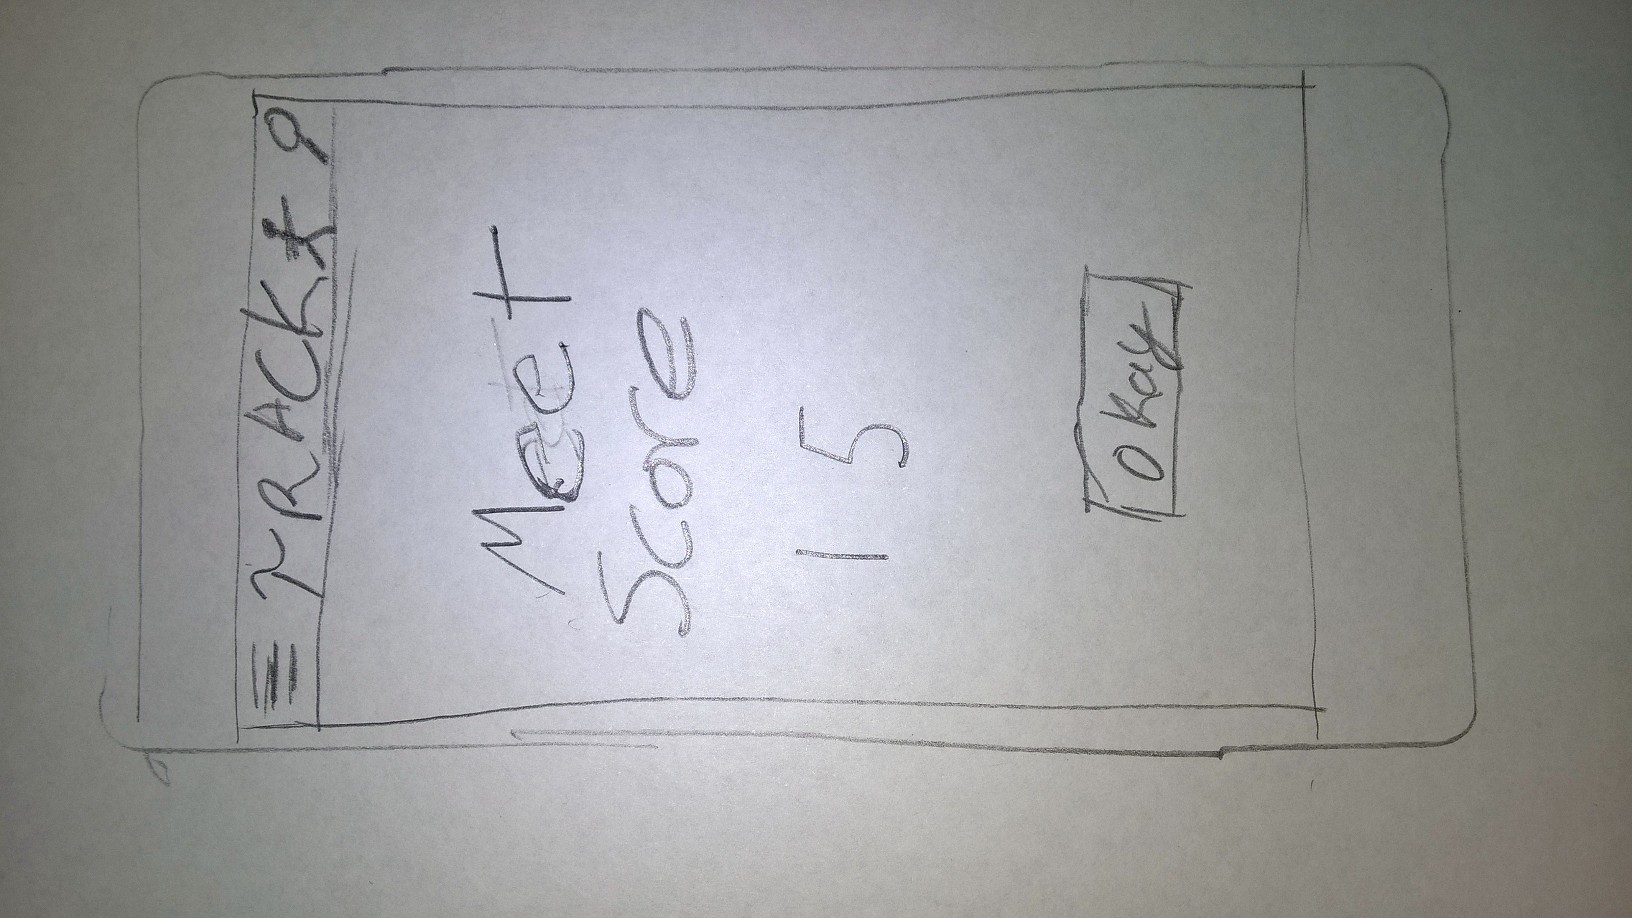 TRACK
Meet
Score
15
Okay